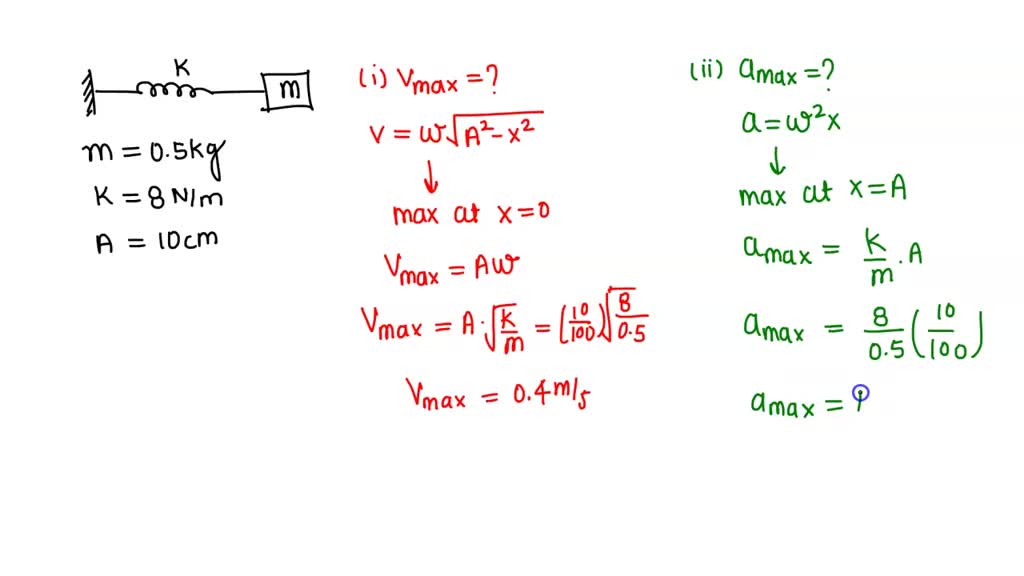 K
m
m = 0.5kg
K = 8 N/m
A = 10cm
(i) Vmax = ?
V = ω√(A² - x²)
↓
max at x = 0
Vmax = Aω
Vmax = A·√(K/m) = (10/100)√(8/0.5)
Vmax = 0.4 m/s
(ii) amax = ?
a = ω²x
↓
max at x = A
amax = K/m . A
amax = 8/0.5 (10/100)
amax =